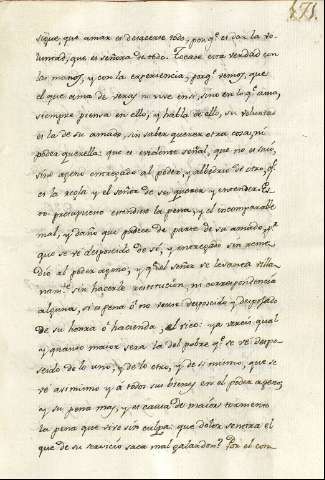 171.
sigue, que amar es deshacerse todo, porq.e es dar la vo-
luntad, que es señora de todo. Tocase esta verdad con
las manos, y con la experiencia; porq.e vemos, que
el que ama de veras no vive en si, sino en lo q.e ama,
siempre piensa en ello, y habla de ello, su voluntad
es la de su amado, sin saber querer otra cosa, ni
poder quererla: que es evidente señal, que no es suio,
sino ageno entregado al poder, y alvedrio de otro, q.e
es la regla y el señor de su querer y entender. Es-
to presupuesto entendido la pena, y el incomparable
mal, y daño que padece de parte de su amado, p.r
que se ve desposeido de sí, y entregado sin reme-
dio al poder ageno, y q.e el señor se levanta villa-
nam.te sin hacerle restitucion, ni correspondencia
alguna, si es pena ó no verse desposeido y despojado
de su honra ó hacienda, al rico: ya vereis qual
y quanto maior sera la del pobre q.e se ve despo-
seido de lo uno, y de lo otro, y de si mismo, que se
ve asimismo y á todos sus bienes en el poder ageno
y su pena mas, y es causa de maior tormento
la pena que vive sin culpa: que dolor sentira el
que de su servicio saca mal galardon? Por el con-